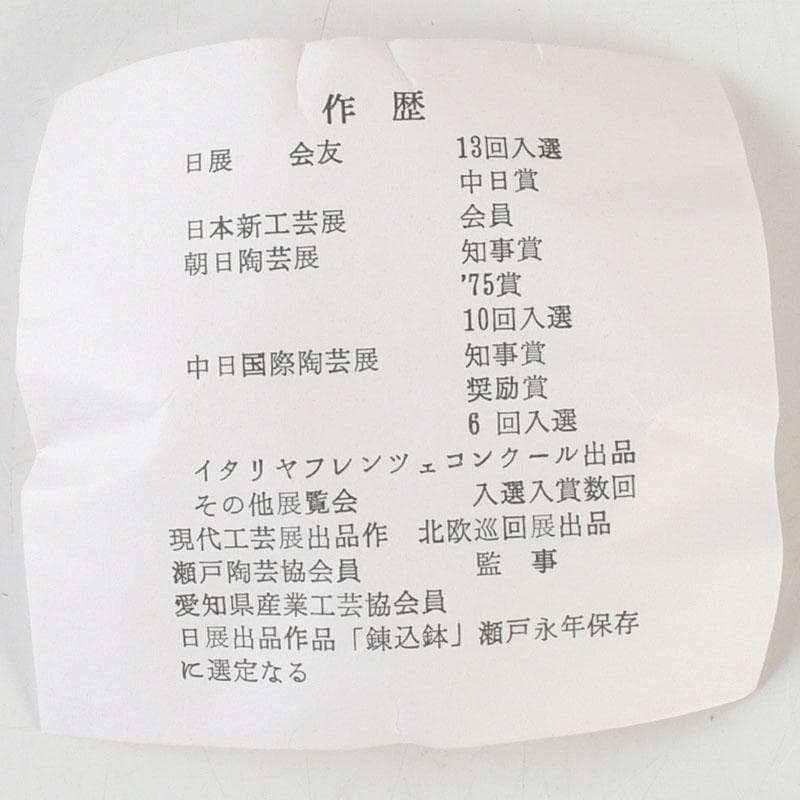 作 歴
日展 会友 13回入選
中日賞
日本新工芸展 会員
朝日陶芸展 知事賞
'75賞
10回入選
中日国際陶芸展 知事賞
奨励賞
6 回入選
イタリヤフレンツェコンクール出品
その他展覧会 入選入賞数回
現代工芸展出品作 北欧巡回展出品
瀬戸陶芸協会員 監 事
愛知県産業工芸協会員
日展出品作品「錬込鉢」瀬戸永年保存
に選定なる